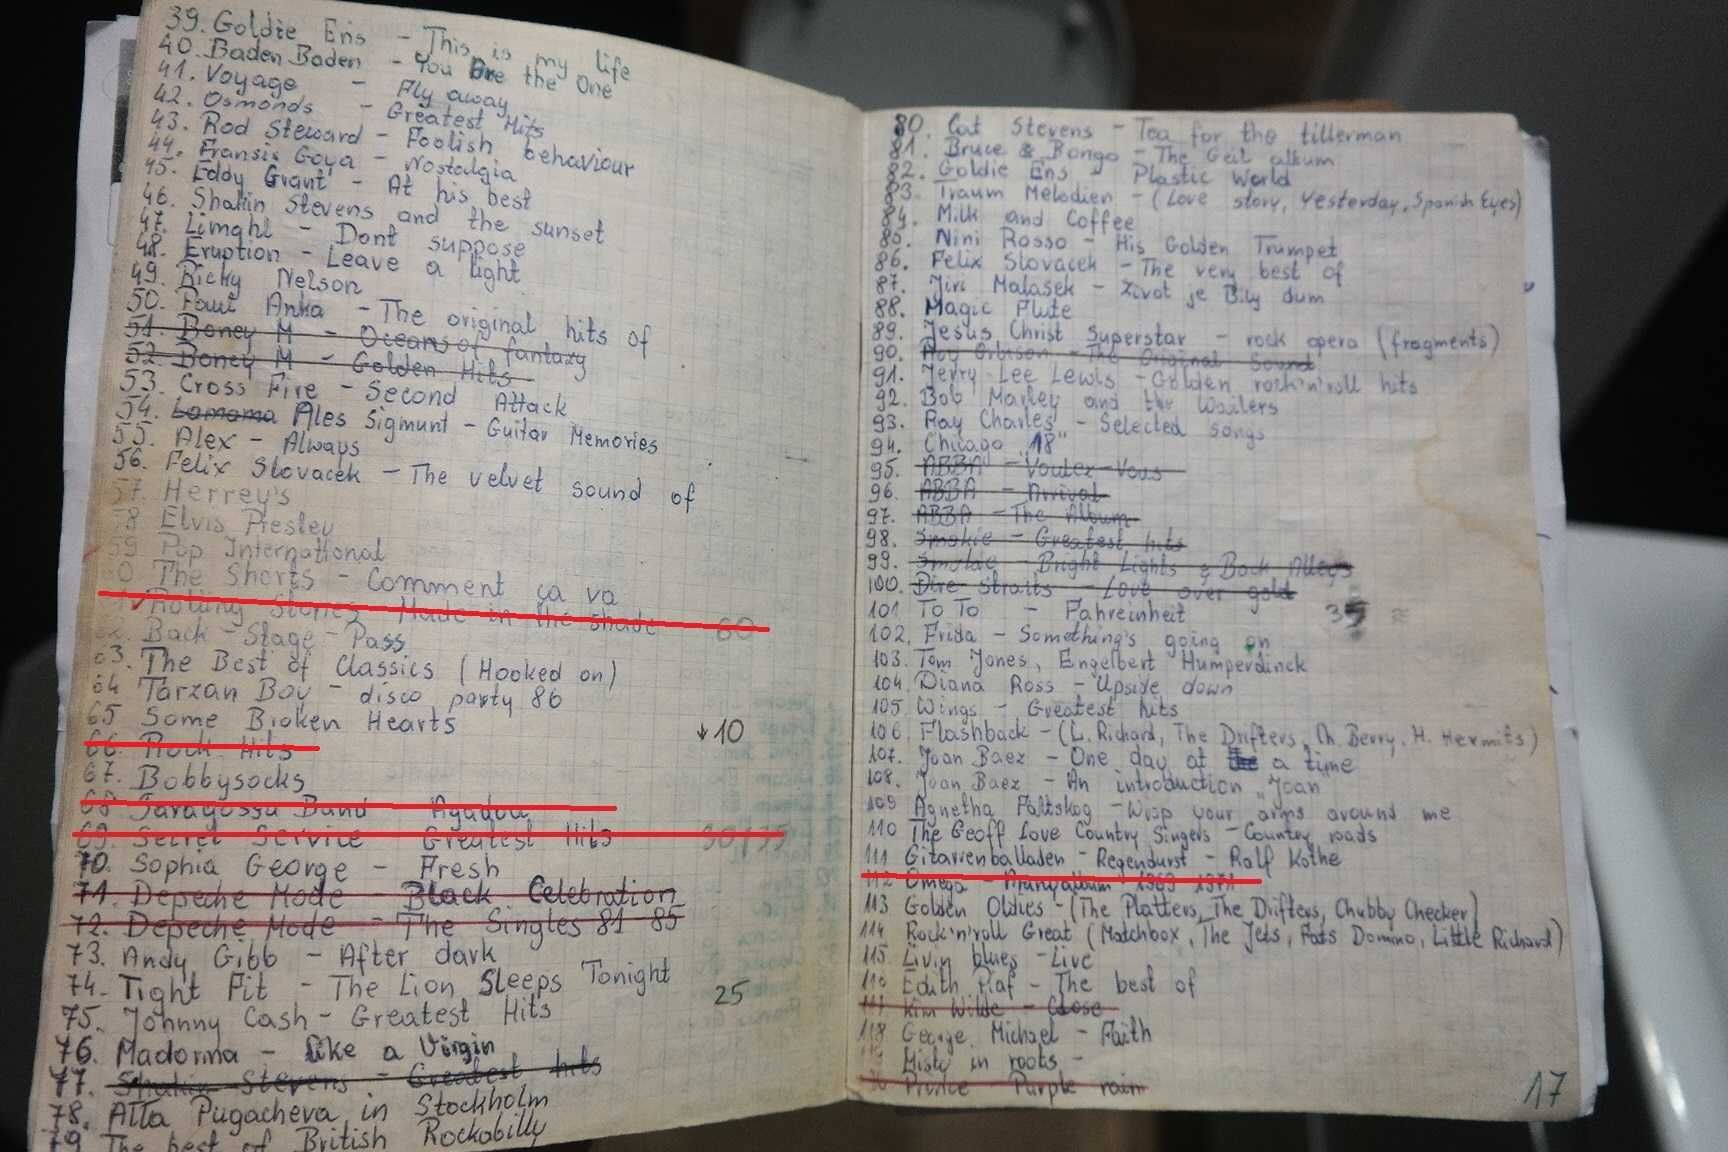 39. Goldie Ens - This is my life
40. Baden Baden - You are the One
41. Voyage - Fly away
42. Osmonds - Greatest Hits
43. Rod Steward - Foolish behaviour
44. Fransis Goya - Nostalgia
45. Eddy Grant - At his best
46. Shakin Stevens and the sunset
47. Limahl - Dont suppose
48. Eruption - Leave a light
49. Ricky Nelson
50. Paul Anka - The original hits of
51. Boney M - Oceans of fantazy
52 Boney M - Golden Hits
53. Cross Fire - Second Attack
54. Lamama Ales Sigmunt - Guitar Memories
55. Alex - Always
56. Felix Slovacek - The velvet sound of
57. Herrey's
58 Elvis Presley
59 Pop International
60 The Shorts - Comment ça va
Rolling Stones Made in the shade 60
62. Back - Stage - Pass
63. The Best of Classics (Hooked on)
64 Tarzan Boy - disco party 86
65 Some Broken Hearts ↓10
66. Rock Hits
67. Bobbysocks
68 Saragossa Band Agadou
69. Secret Service Greatest Hits 30/35
70. Sophia George - Fresh
71. Depeche Mode - Black Celebration
72. Depeche Mode - The Singles 81 85
73. Andy Gibb - After dark
74. Tight Fit - The Lion Sleeps Tonight 25
75. Johnny Cash - Greatest Hits
76. Madonna - Like a Virgin
77. Shakin Stevens - Greatest hits
78. Alla Pugacheva in Stockholm
79 The best of British Rockabilly
80. Cat Stevens - Tea for the tillerman
81. Bruce & Bongo - The Geil album
82. Goldie Ens - Plastic World
83. Traum Melodien - (Love story, Yesterday, Spanish Eyes)
84. Milk and Coffee
85. Nini Rosso - His Golden Trumpet
86. Felix Slovacek - The very best of
87. Jiri Malasek - Zivot je Bily dum
88. Magic Flute
89. Jesus Christ Superstar - rock opera (fragments)
90. Roy Orbison - The Original Sound
91. Jerry Lee Lewis - Golden rock'n'roll hits
92. Bob Marley and the Wailers
93. Ray Charles - Selected songs
94. Chicago "18"
95. ABBA - Voulez-Vous
96. ABBA - Arrival
97. ABBA - The Album
98. Smokie - Greatest hits
99. Smokie - Bright Lights & Back Alleys
100. Dire Straits - Love over gold
101 To To - Fahreinheit 35
102. Frida - Something's going on
103. Tom Jones, Engelbert Humperdinck
104. Diana Ross - Upside down
105. Wings - Greatest hits
106 Flashback - (L. Richard, The Drifters, Ch. Berry, H. Hermits)
107. Joan Baez - One day at the a time
108. Joan Baez - An introduction Joan
109 Agnetha Faltskog - Wrap your arms around me
110 The Geoff Love Country Singers - Country roads
111 Gitarrenballaden - Regendurst - Ralf Kothe
112 Omega - 1969 1971
113 Golden Oldies - (The Platters, The Drifters, Chubby Checker)
114 Rock'n'roll Great (Matchbox, The Jets, Fats Domino, Little Richard)
115 Livin blues - Live
116 Edith Piaf - The best of
117 Kim Wilde - Close
118 George Michael - Faith
119 Misty in roots -
Prince Purple rain
17